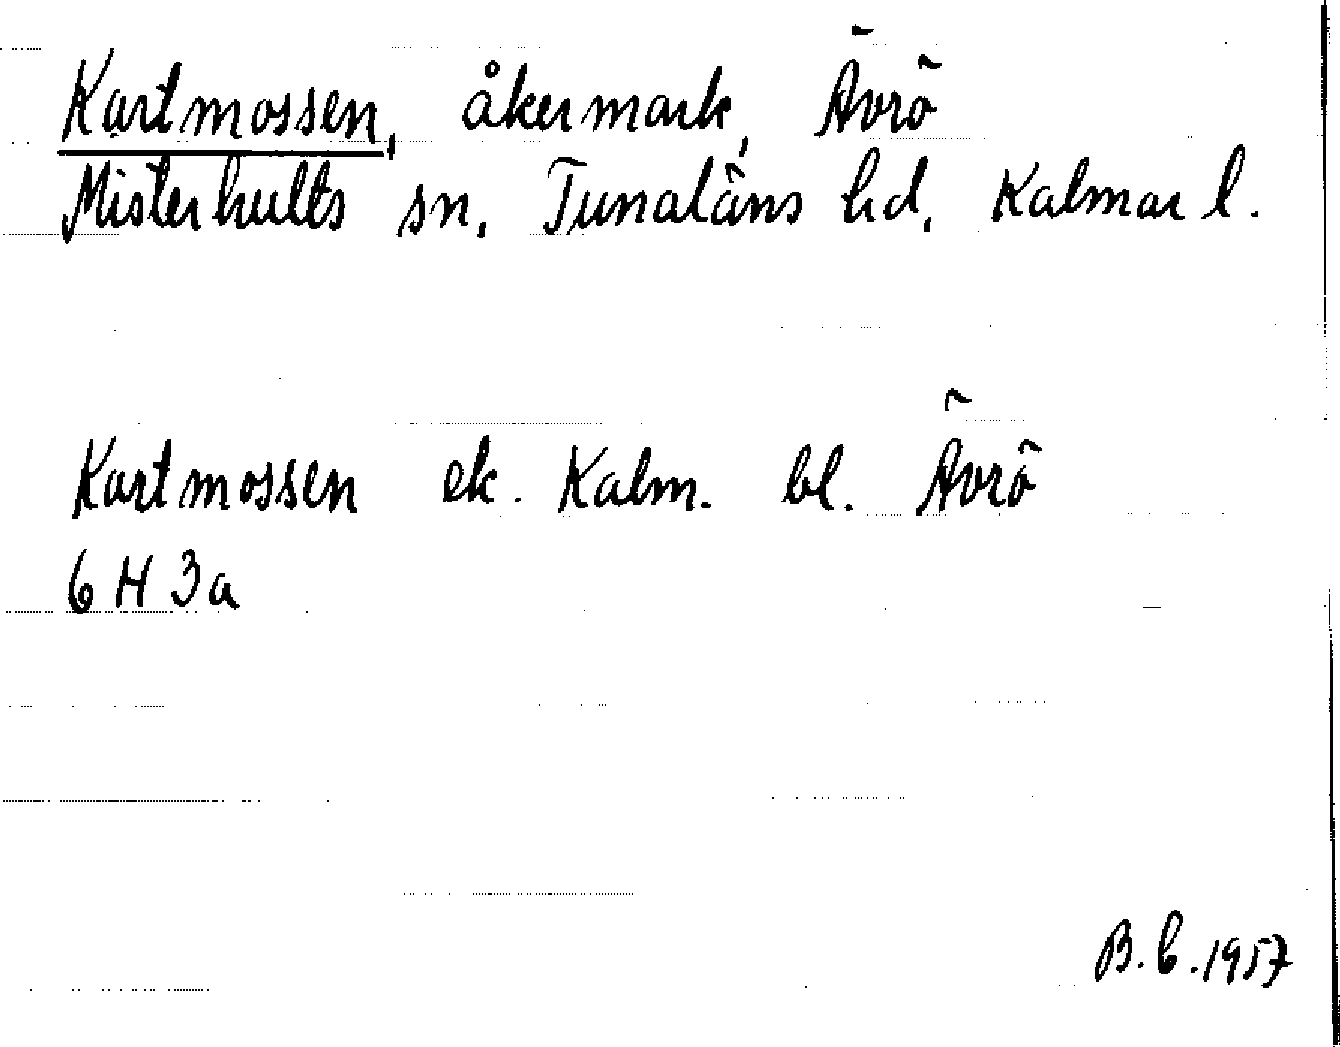 Kartmossen, åkermark, Ävrö
Misterhults sn, Tunaläns hd, Kalmar l.
Kartmossen ek. Kalm. bl. Ävrö
6 H 3a
B.b.1957